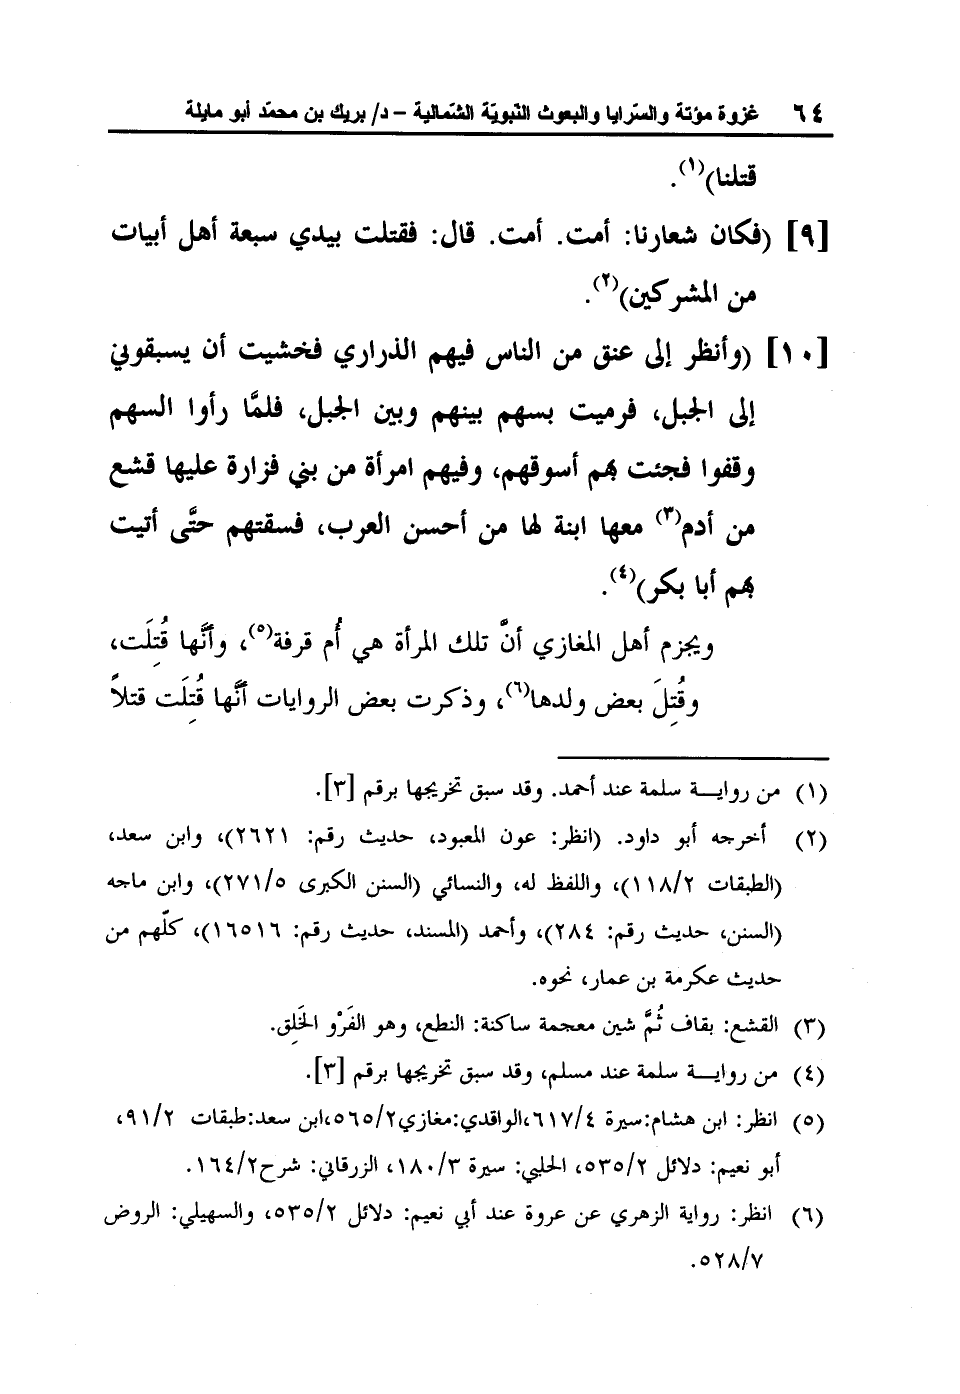 ٦٤ غزوة مؤتة والسّرايا والبعوث النّبويّة الشّمالية – د/ بريك بن محمّد أبو مايلة
قتلنا)(١).
[٩] (فكان شعارنا: أمت. أمت. قال: فقتلت بيدي سبعة أهل أبيات
من المشركين)(٢).
[١٠] (وأنظر إلى عنق من الناس فيهم الذراري فخشيت أن يسبقوني
إلى الجبل، فرميت بسهم بينهم وبين الجبل، فلمَّا رأوا السهم
وقفوا فجئت بهم أسوقهم، وفيهم امرأة من بني فزارة عليها قشع
من أدم(٣) معها ابنة لها من أحسن العرب، فسقتهم حتَّى أتيت
بهم أبا بكر)(٤).
ويجزم أهل المغازي أنَّ تلك المرأة هي أُم قرفة(٥)، وأنَّها قُتِلَت،
وقُتِلَ بعض ولدها(٦)، وذكرت بعض الروايات أنَّها قُتِلَت قتلاً
(١) من روايـــة سلمة عند أحمد. وقد سبق تخريجها برقم [٣].
(٢) أخرجه أبو داود. (انظر: عون المعبود، حديث رقم: ٢٦٢١)، وابن سعد،
(الطبقات ١١٨/٢)، واللفظ له، والنسائي (السنن الكبرى ٢٧١/٥)، وابن ماجه
(السنن، حديث رقم: ٢٨٤)، وأحمد (المسند، حديث رقم: ١٦٥١٦)، كلّهم من
حديث عكرمة بن عمار، نحوه.
(٣) القشع: بقاف ثُمَّ شين معجمة ساكنة: النطع، وهو الفَرْو الخَلِق.
(٤) من روايـــة سلمة عند مسلم، وقد سبق تخريجها برقم [٣].
(٥) انظر: ابن هشام:سيرة ٦١٧/٤،الواقدي:مغازي٥٦٥/٢،ابن سعد:طبقات ٩١/٢،
أبو نعيم: دلائل ٥٣٥/٢، الحلبي: سيرة ١٨٠/٣، الزرقاني: شرح١٦٤/٢.
(٦) انظر: رواية الزهري عن عروة عند أبي نعيم: دلائل ٥٣٥/٢، والسهيلي: الروض
٥٢٨/٧.